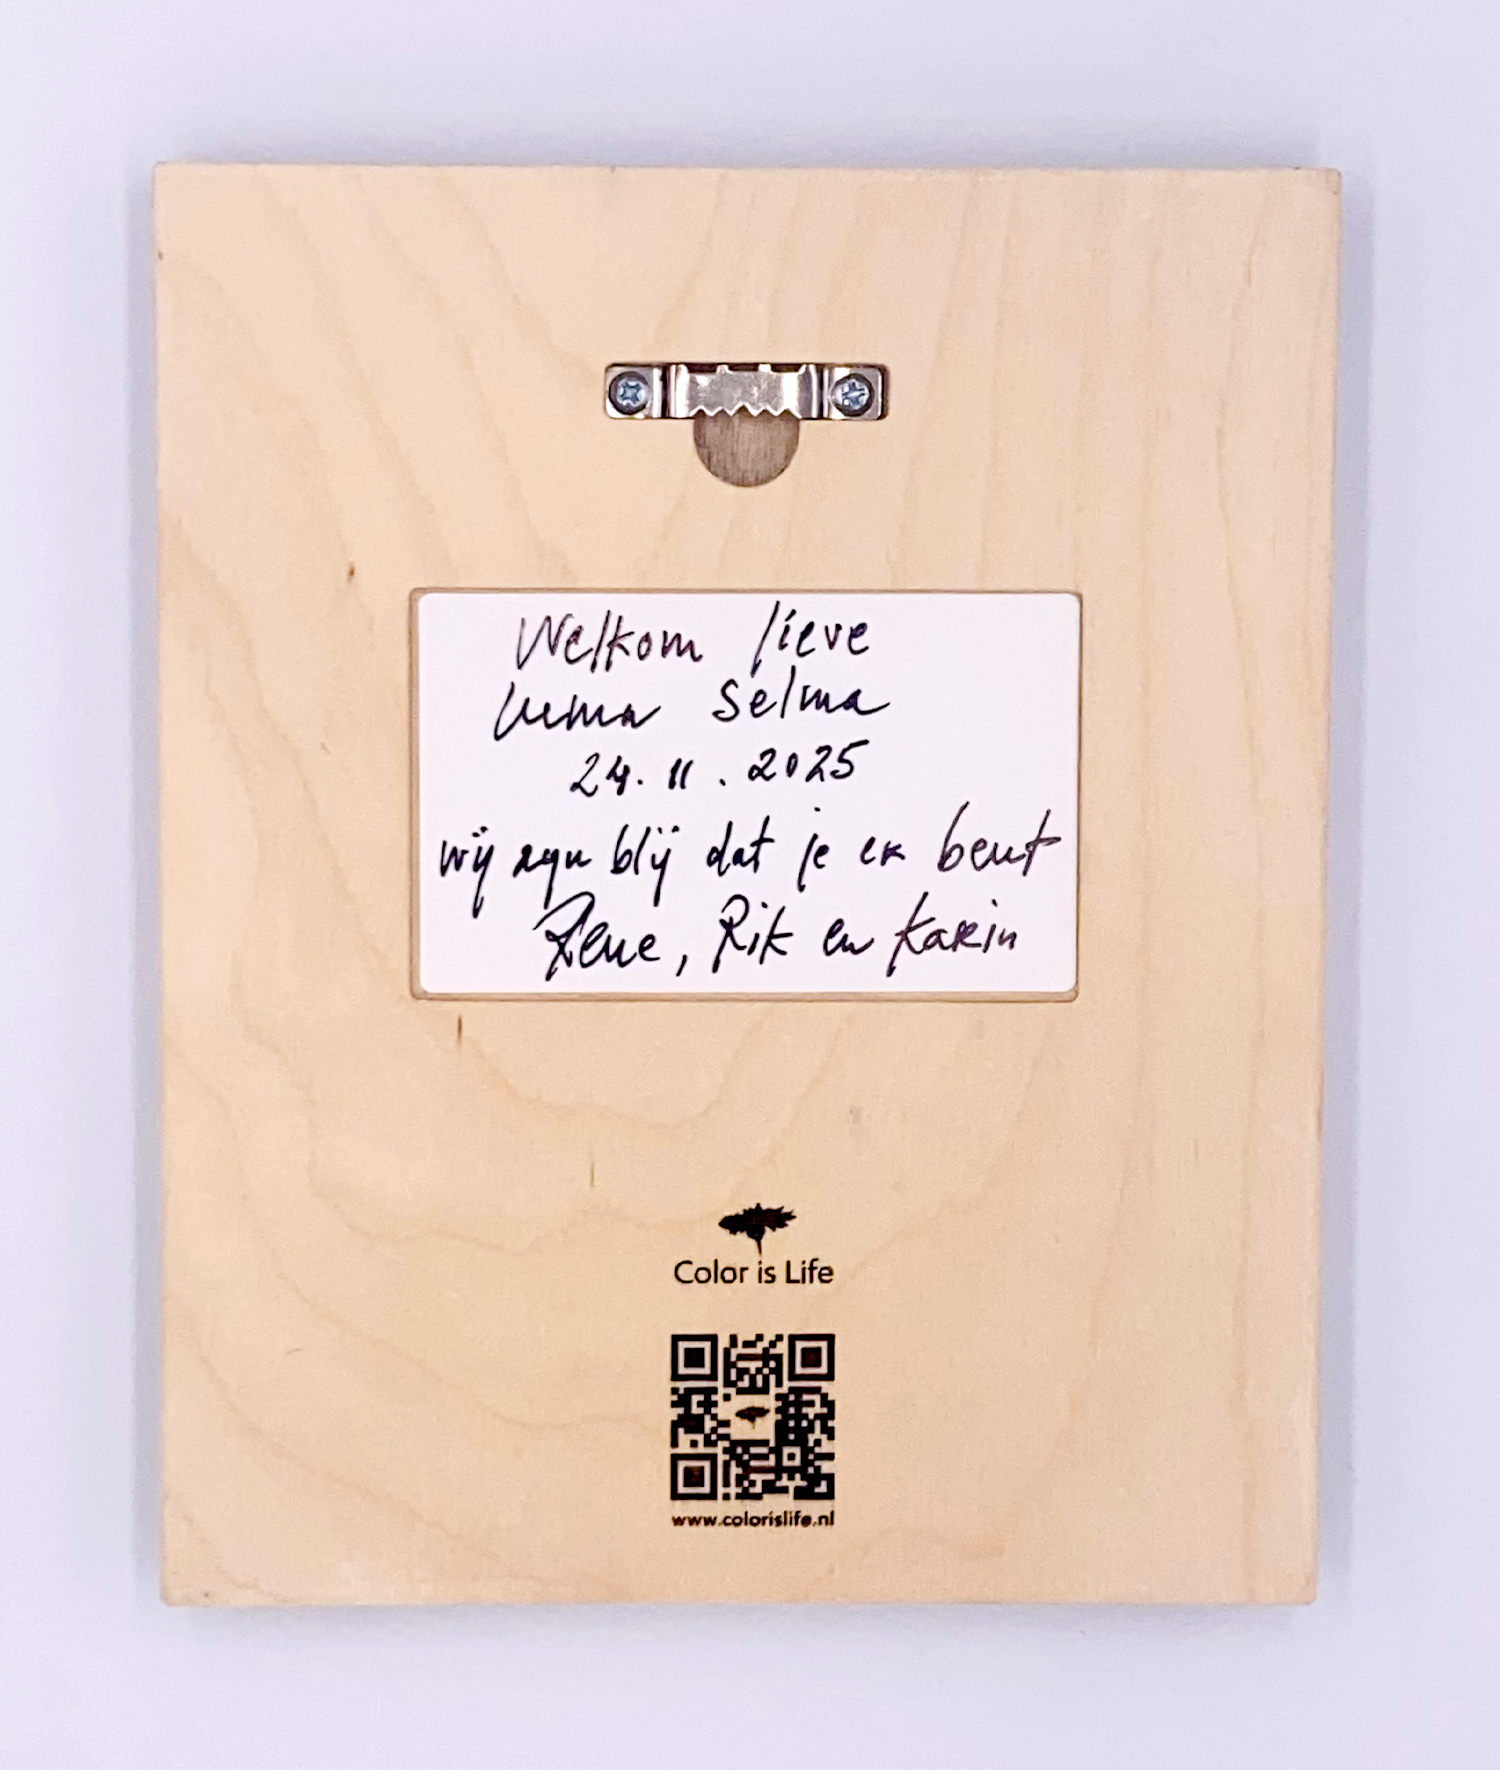 Welkom lieve
Selma
24.11.2025
wij zijn blij dat je er bent
Rene, Rik en Karin
Color is Life
www.colorislife.nl